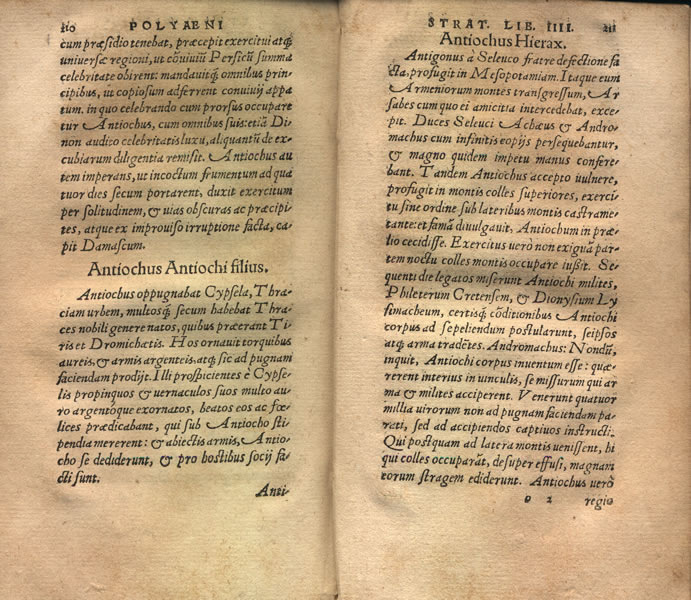 210 POLYAENI
cum præsidio tenebat, præcepit exercitui atq́;
universæ regioni, ut cõuiuiũ Persicũ summa
celebritate obirent: mandauitq́; omnibus prin-
cipibus, ut copiosum adferrent conuiuij appa
tum. in quo celebrando cum prorsus occupare
tur Antiochus, cum omnibus suis: etiã Di
non audito celebritatis luxu, aliquantũ de ex-
cubiarum diligentia remisit. Antiochus au
tem imperans, ut incoctum frumentum ad qua
tuor dies secum portarent, duxit exercitum
per solitudinem, & uias obscuras ac præcipi-
tes, atque ex improuiso irruptione facta, ca-
pit Damascum.
Antiochus Antiochi filius.
Antiochus oppugnabat Cypsela, Thra-
ciam urbem, multosq́; secum habebat Thra-
ces nobili genere natos, quibus præerant Ti-
ris et Dromichætis. Hos ornauit torquibus
aureis, & armis argenteis. atq́; sic ad pugnam
faciendam prodijt. Illi prospicientes è Cypse-
lis propinquos & uernaculos suos multo au-
ro argentóque exornatos, beatos eos ac fœ-
lices prædicabant, qui sub Antiocho sti-
pendia mererent: & abiectis armis, Antio-
cho se dediderunt, & pro hostibus socij fa-
cti sunt.
Anti-
STRAT. LIB. IIII. 211
Antiochus Hierax.
Antigonus à Seleuco fratre defectione fa
cta, profugit in Mesopotamiam. Itaque cum
Armeniorum montes transgressum, Ar
sabes cum quo ei amicitia intercedebat, exce-
pit. Duces Seleuci Achæus & Andro-
machus cum infinitis copijs persequebantur,
& magno quidem impetu manus confere-
bant. Tandem Antiochus accepto uulnere,
profugit in montis colles superiores, exerci-
tu sine ordine sub lateribus montis castrame-
tante: et famã diuulgauit, Antiochum in præ-
lio cecidisse. Exercitus uerò non exiguã par-
tem noctu colles montis occupare iußit. Se-
quenti die legatos miserunt Antiochi milites,
Phileterum Cretensem, & Dionysium Ly
simacheum, certisq́; cõditionibus Antiochi
corpus ad sepeliendum postularunt, seipsos
atq́; arma tradẽtes. Andromachus: Nondũ,
inquit, Antiochi corpus inuentum esse: quæ-
rerent interius in uinculis, se missurum qui ar
ma & milites acciperent. Venerunt quatuor
millia uirorum non ad pugnam faciendam pa-
rati, sed ad accipiendos captiuos instructi.
Qui postquam ad latera montis uenissent, hi
qui colles occuparãt, desuper effusi, magnam
eorum stragem ediderunt. Antiochus uerò
o 2 regio